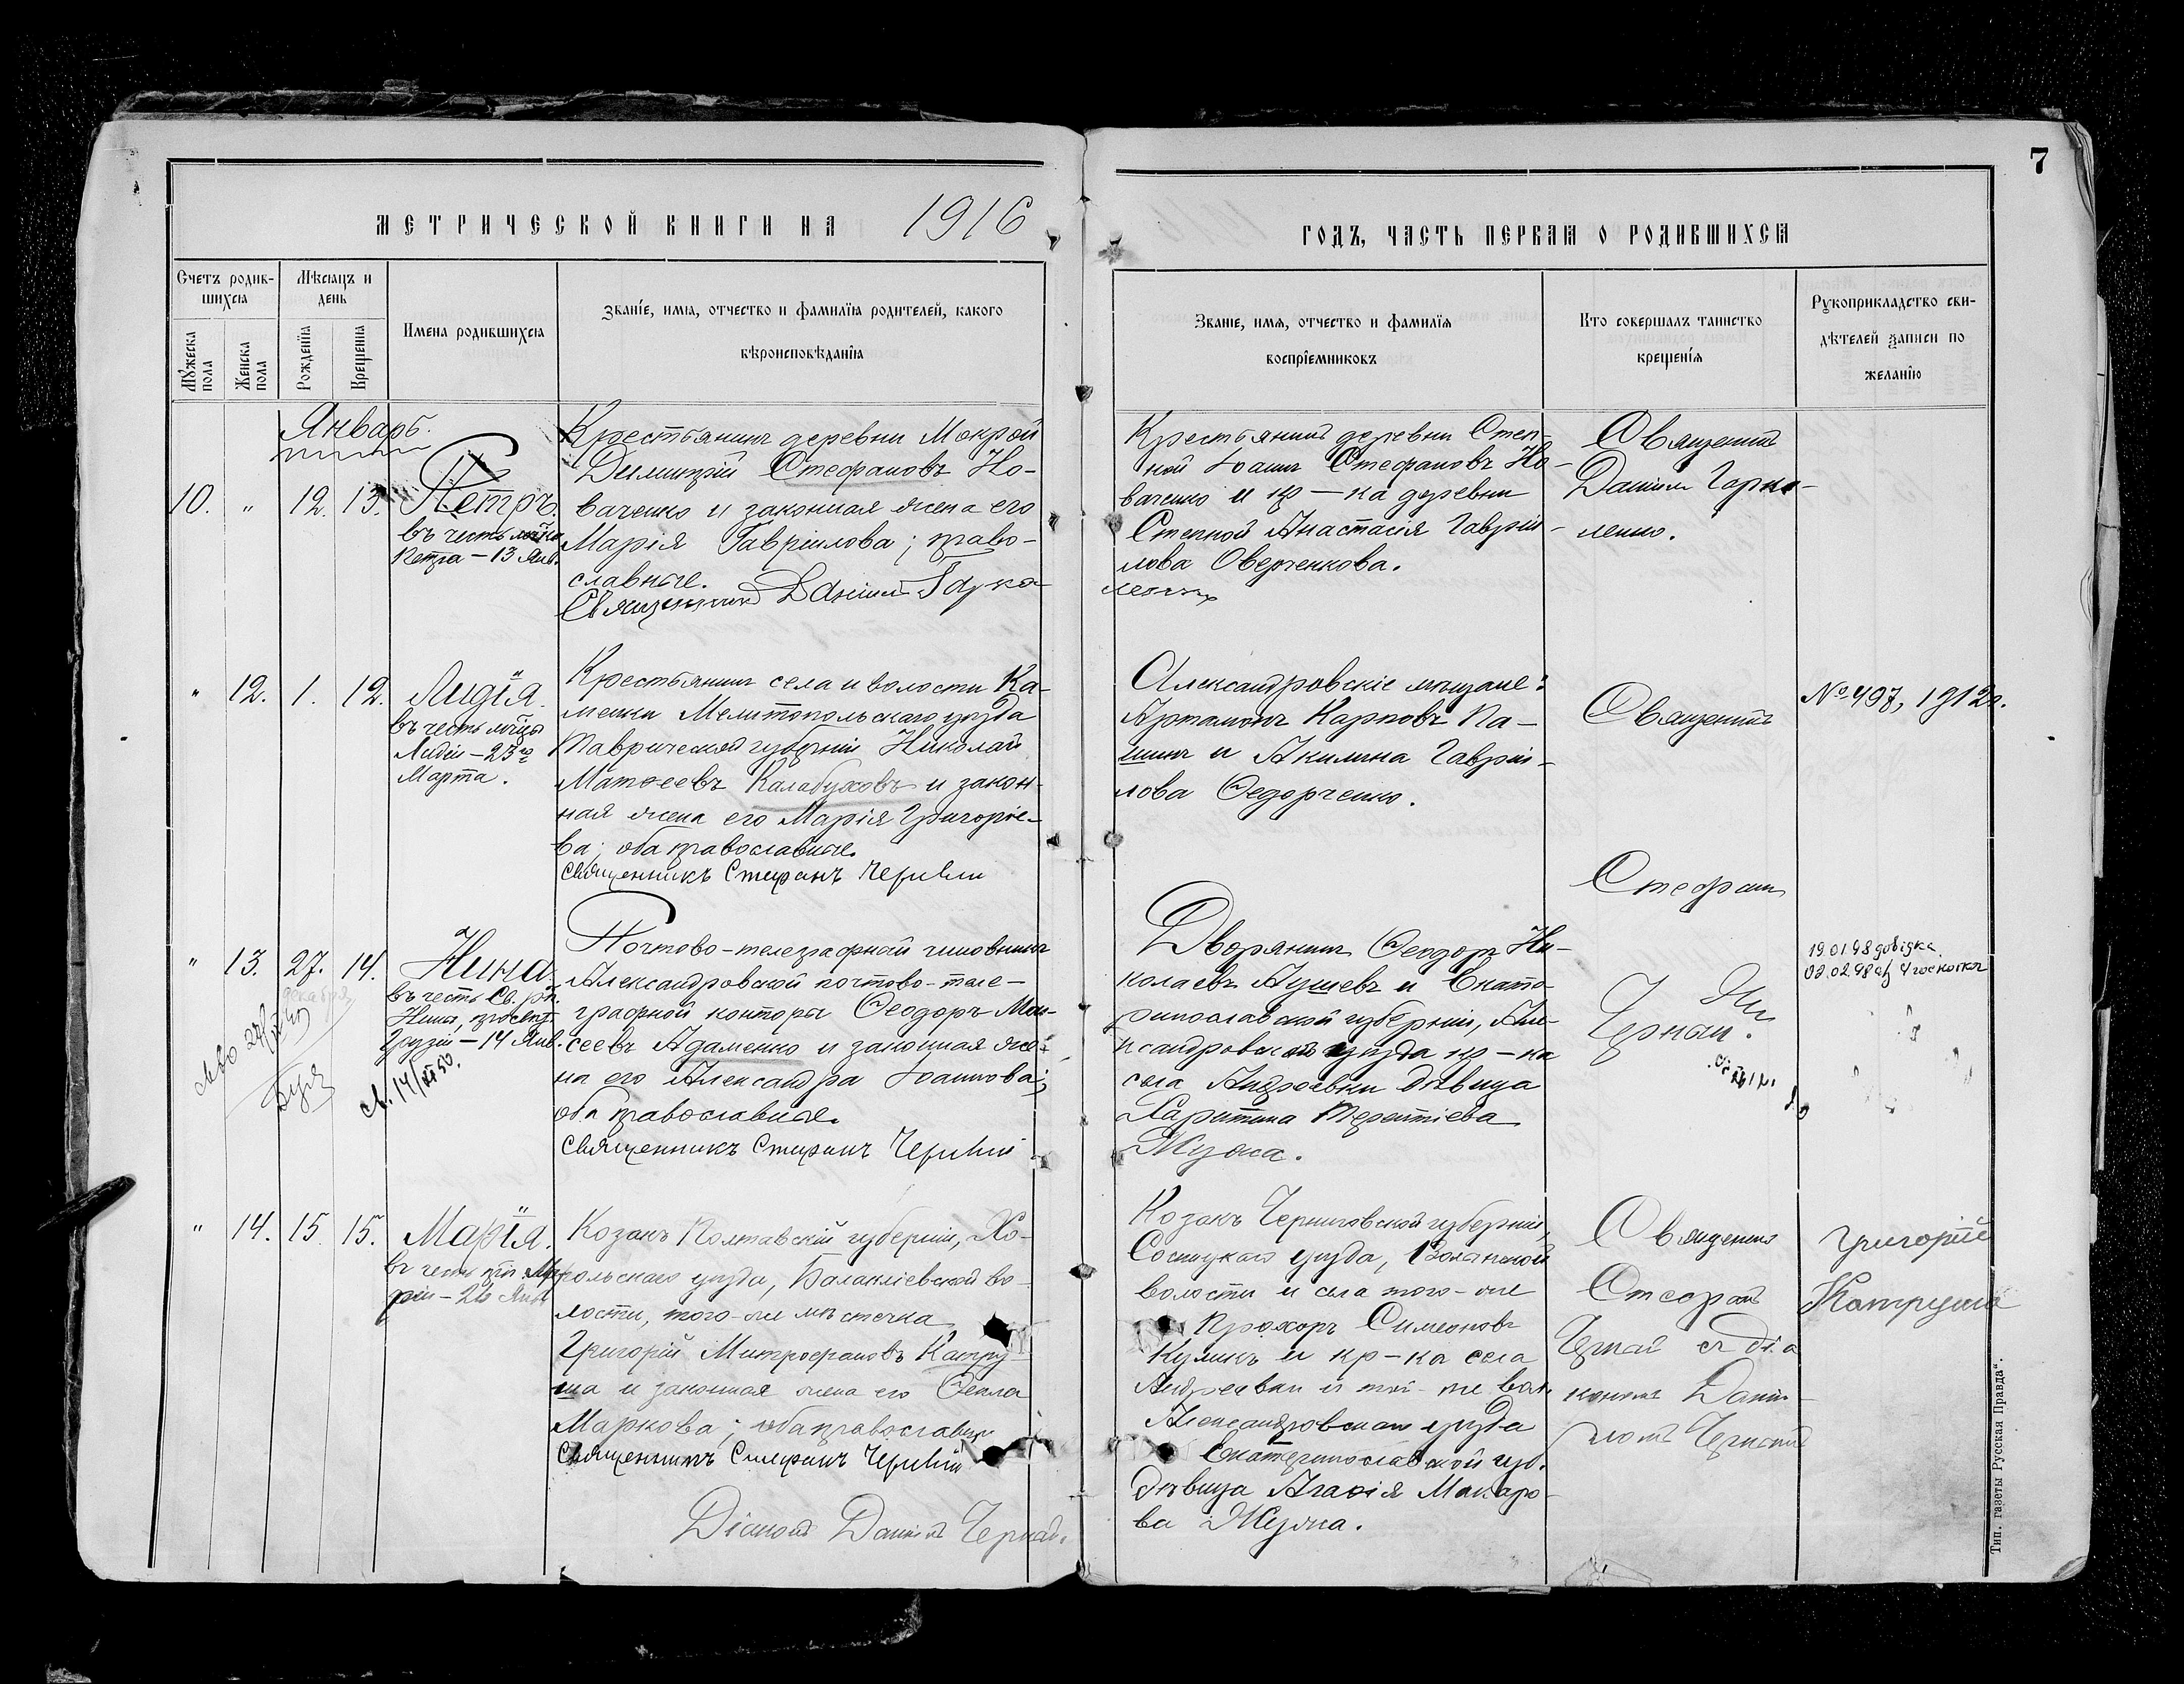 7
МЕТРИЧЕСКОЙ КНИГИ НА 1916
ГОДЪ, ЧАСТЬ ПЕРВАЯ О РОДИВШИХСЯ
Счетъ родив-
шихся
Мужеска пола
Женска пола
Мѣсяцъ и
день
Рожденїя
Крещенїя
Имена родившихся
Званїе, имя, отчество и фамилїя родителей, какого
вѣроисповѣданїя
Званїе, имя, отчество и фамилїя
воспрїемниковъ
Кто совершалъ таинство
крещенїя
Рукоприкладство сви-
дѣтелей записи по
желанїю
Январь.
10. " 12. 13. Петръ.
въ честь
Петра – 13 Янв.
Крестьянинъ деревни Мокрой
Димитрій Стефановъ Но-
ваченко и законная жена его
Марія Гавріилова; право-
славные.
Священникъ Даніилъ Гарка-
Крестьянинъ деревни Степ-
ной Іоаннъ Стефановъ Но-
ваченко и кр–ка деревни
Степной Анастасія Гавріи-
лова Оверченкова.
Священникъ
Даніилъ Гарка-
ленко.
" 12. 1. 12. Лидія.
въ честь
Лидіи – 23го
Марта.
Крестьянинъ села и волости Ка-
менки Мелитопольскаго уѣзда
Таврической губерніи Николай
Матѳеевъ Калабуховъ и закон-
ная жена его Марія Григоріе-
ва; оба православные.
Священникъ Стефанъ Черный
Александровскіе мѣщане:
Артамонъ Карповъ Па-
шинъ и Акилина Гавріи-
лова Ѳедорченко.
Священникъ
Стефанъ
№ 497, 1912г.
" 13. 27. 14. Нина.
декабря
въ честь Св. рп.
Нины, просвѣт.
Грузіи – 14 Янв.
Почтово-телеграфный чиновникъ
Александровской почтово-теле-
графной конторы Ѳеодоръ Мои-
сеевъ Адаменко и законная же-
на его Александра Іоаннова;
оба православные.
Священникъ Стефанъ Черный
Дворянинъ Ѳеодоръ Ни-
колаевъ Аушевъ и Екате-
ринославской губерніи, Але-
ксандровскаго уѣзда кр–ка
села Андреевки дѣвица
Харитина Терентіева
Жужа.
Черный.
19.01.48 довідка
" 14. 15 15. Марія.
въ честь
ріи – 26 Янв.
Козакъ Полтавской губерніи, Хо-
рольскаго уѣзда, Балакліевской во-
лости, того-же мѣстечка
Григорій Митрофановъ Катру-
ша и законная жена его Ѳекла
Маркова; оба православные
Священникъ Стефанъ Черный
Діаконъ Даніилъ Чернай.
Козакъ Черниговской губерніи,
Сосницкаго уѣзда, Волынской
волости и села того-же
Прохоръ Симеоновъ
Куликъ и кр–ка села
Андреевки и той-же вол.
Александровскаго уѣзда
Екатеринославской губ.
дѣвица Агаѳія Макаро-
ва Жужа.
Священникъ
Стефанъ
Черный съ діа-
кономъ Дани-
ломъ
Григорій
Катруша
Тип. газеты „Русская Правда“.